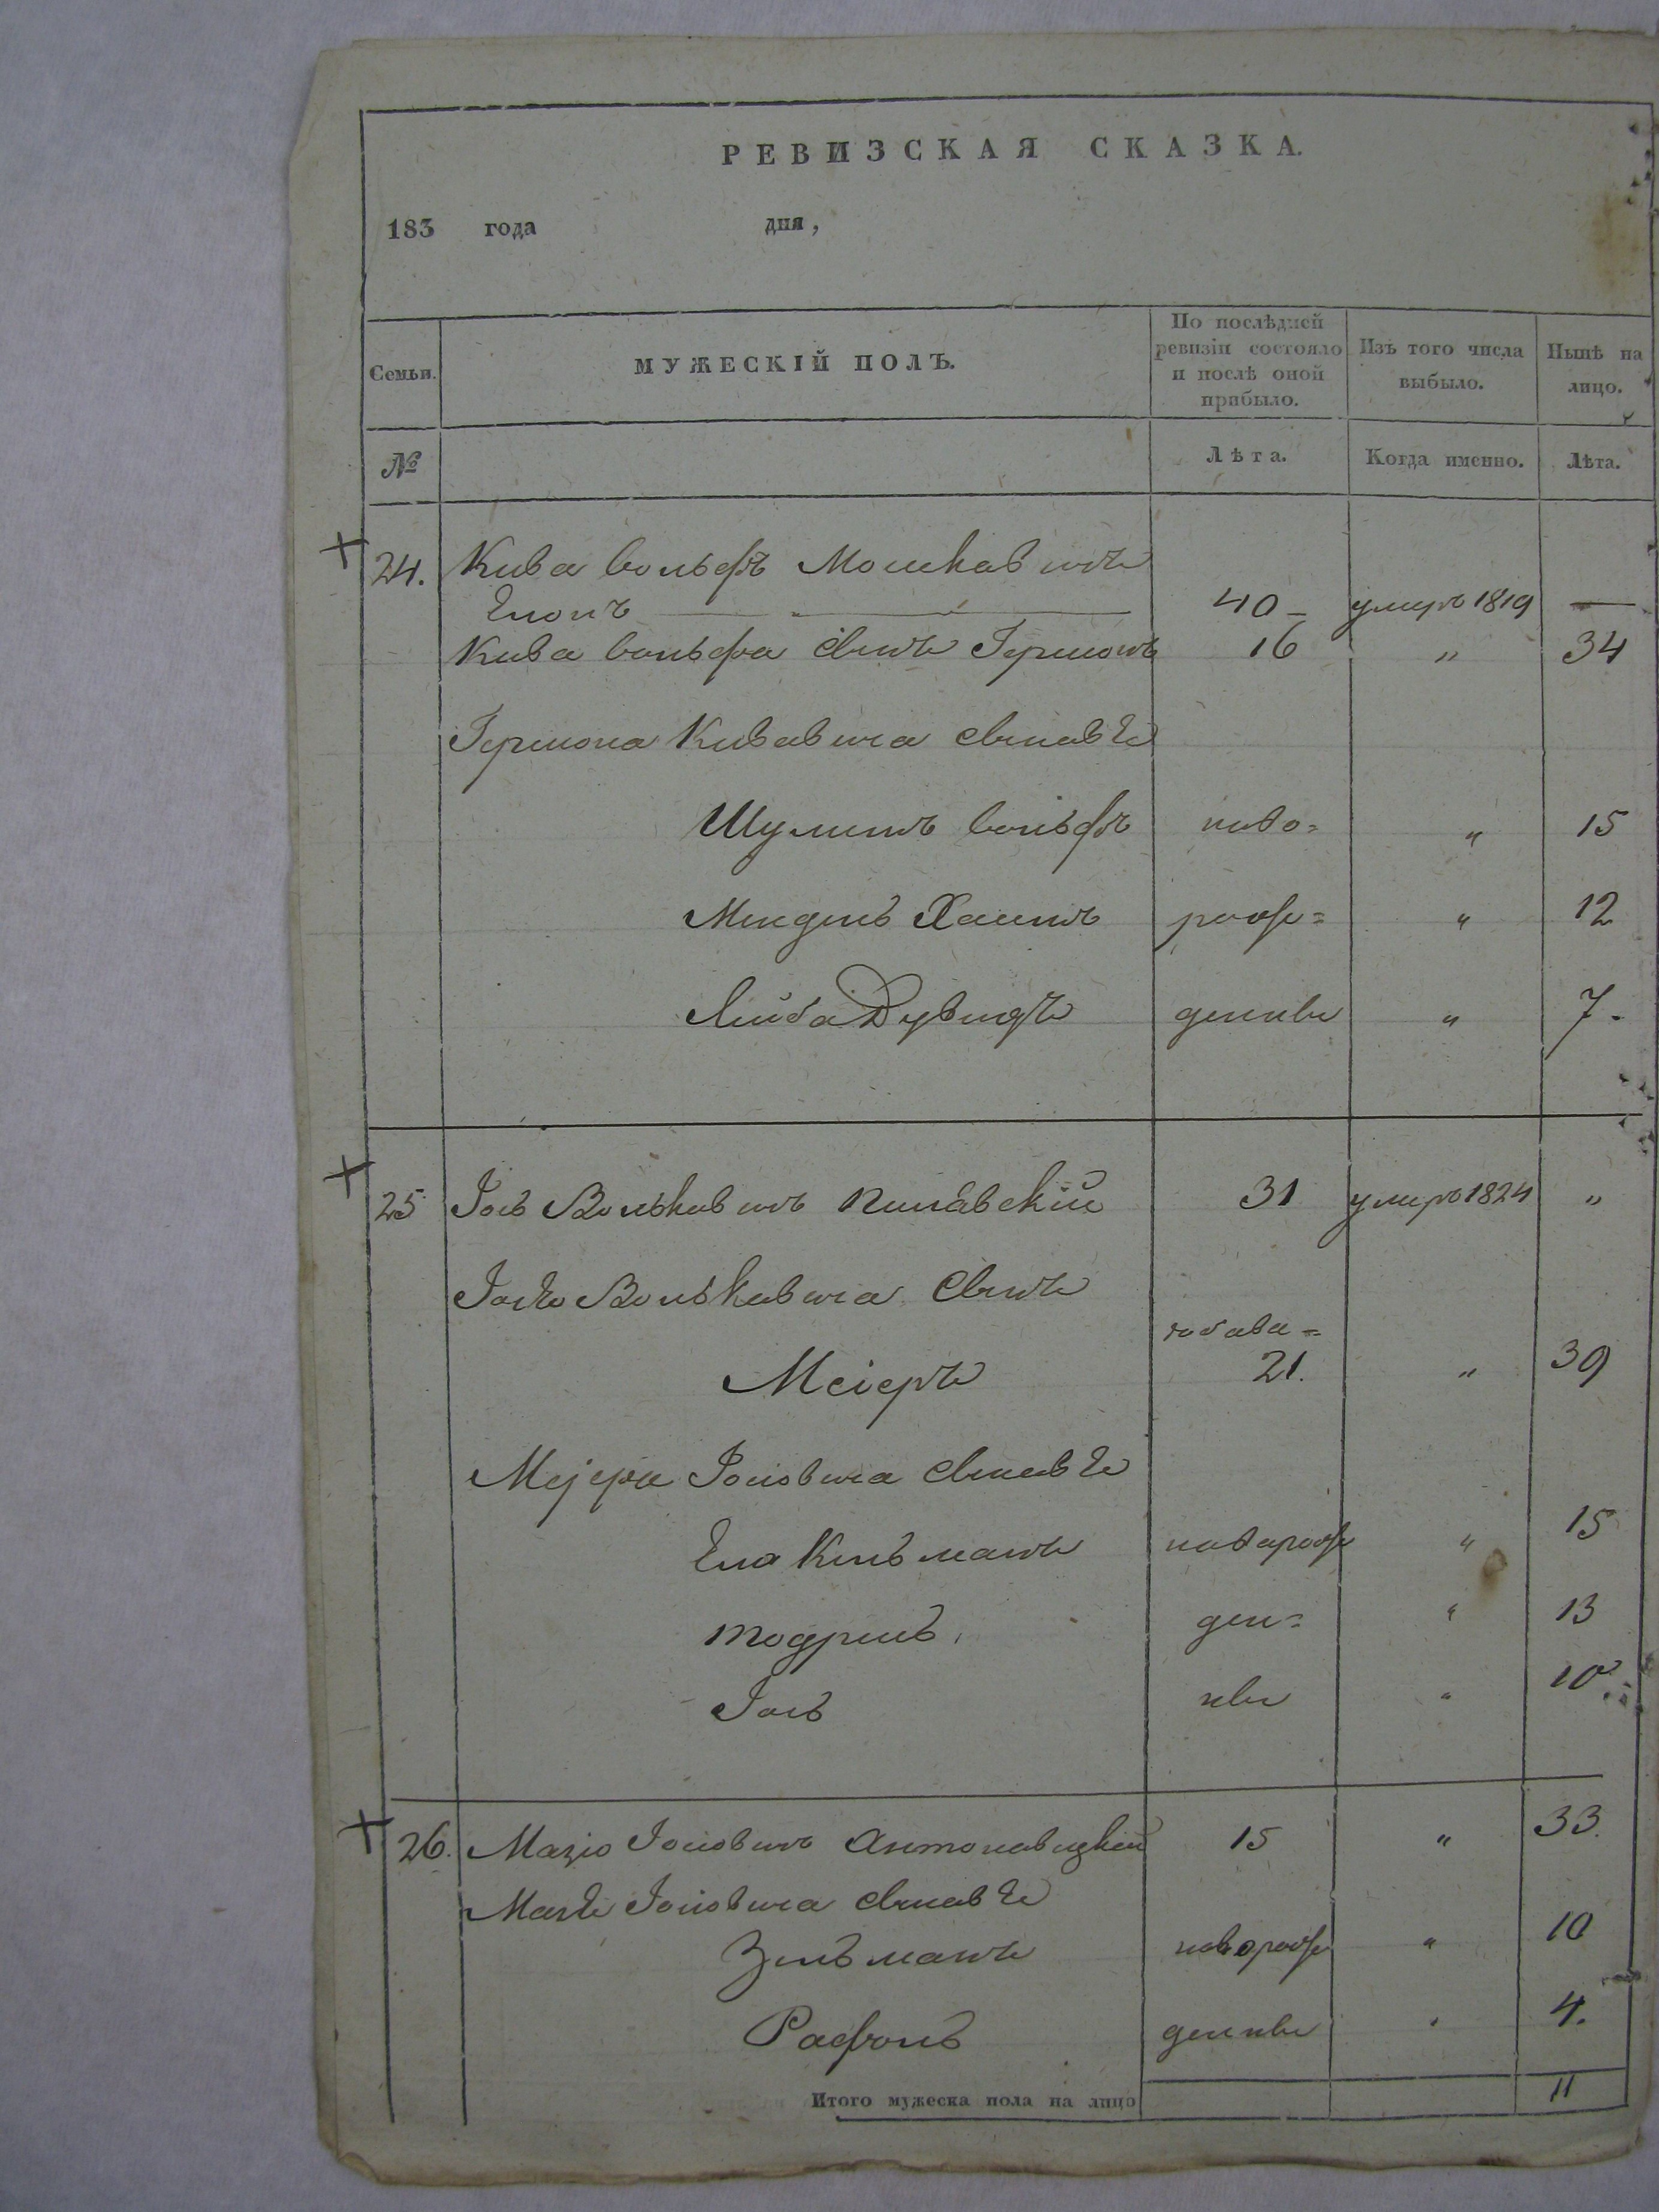 РЕВИЗСКАЯ СКАЗКА.
183 года дня,
Семьи.
МУЖЕСКІЙ ПОЛЪ.
По послѣдней ревизіи состояло и послѣ оной прибыло.
Изъ того числа выбыло.
Нынѣ на лицо.
№
Лѣта.
Когда именно.
Лѣта.
24. Кива Вольфъ Мошкавичъ
40 умеръ 1819 —
Кива Вольфа сынъ 16 " 34
Кивавича сынавъя
Шулимъ Вольфъ ново= " 15
Мендель Хаимъ рожд= " 12
Лейба Дувидъ денные " 7.
25 Іось Вольковичъ 31 умеръ 1824 "
Вольковича сынъ
Меіеръ 21. " 39
Меjера Іосіовича сынавъя
Ела Кильманъ новорожд " 15
Тодрисъ ден= " 13
Іось ные " 10
26. Іосіовичъ Антонавицкій 15 " 33.
Іосіовича сынавъя
Зельманъ новорожд " 10
Рафолъ денные " 4.
Итого мужеска пола на лицо 11